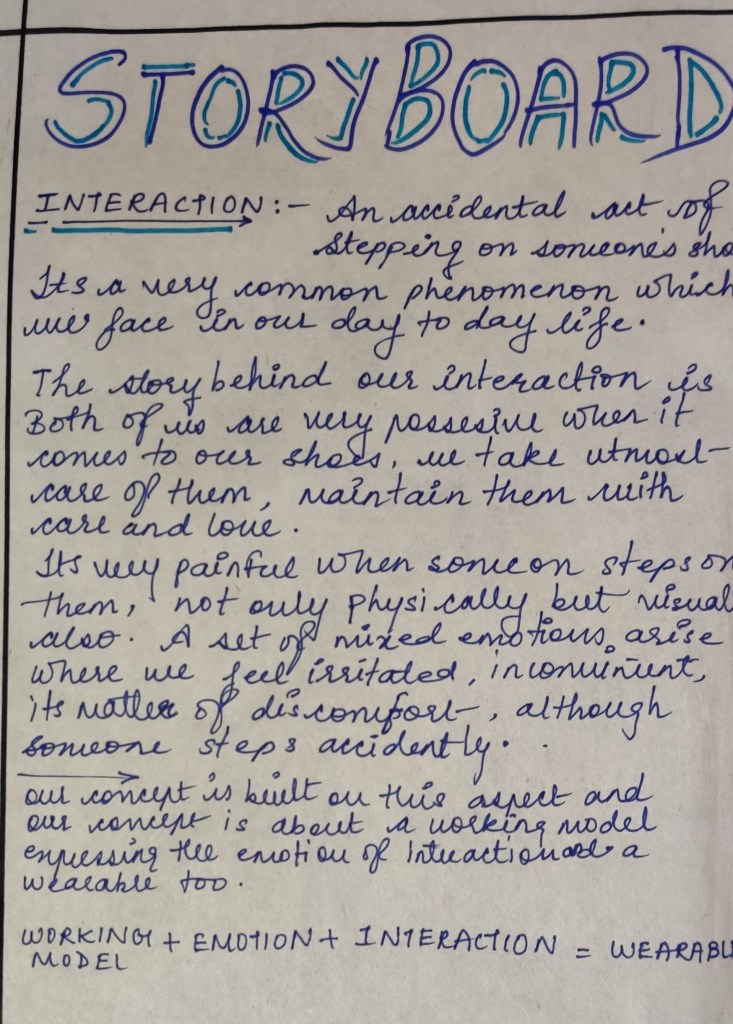 STORYBOARD
INTERACTION :- An accidental act of
stepping on someone's sho
Its a very common phenomenon which
we face in our day to day life.
The story behind our interaction is
Both of us are very possesive when it
comes to our shoes, we take utmost
care of them, maintain them with
care and love.
Its very painful when someon steps on
them, not only physically but visual
also. A set of mixed emotions arise
where we feel irritated, inconvinient,
its matter of discomfort, although
someone steps accidently.
our concept is built on this aspect and
our concept is about a working model
expressing the emotion of interaction and a
wearable too.
WORKING + EMOTION + INTERACTION = WEARABL
MODEL